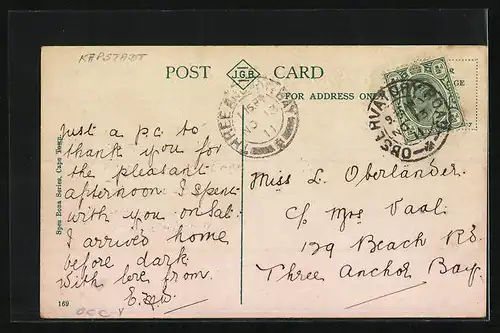 KAPSTADT
POST CARD
J.G.B.
FOR ADDRESS ONLY
THREE ANCHOR BAY
OBSERVATORY ROAD
Just a p.c. to
thank you for
the pleasant
afternoon I spent
with you on Sat.
I arrived home
before dark
with love from
Spes Bona Series, Cape Town.
169
OCC-V
Miss L. Oberlander
c/o Mrs Vaal
129 Beach Rd.
Three Anchor Bay.